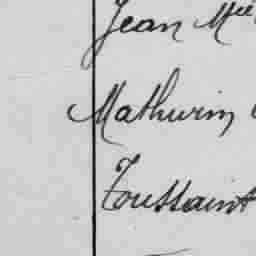 Jean Mie
Mathurin
Toussaint